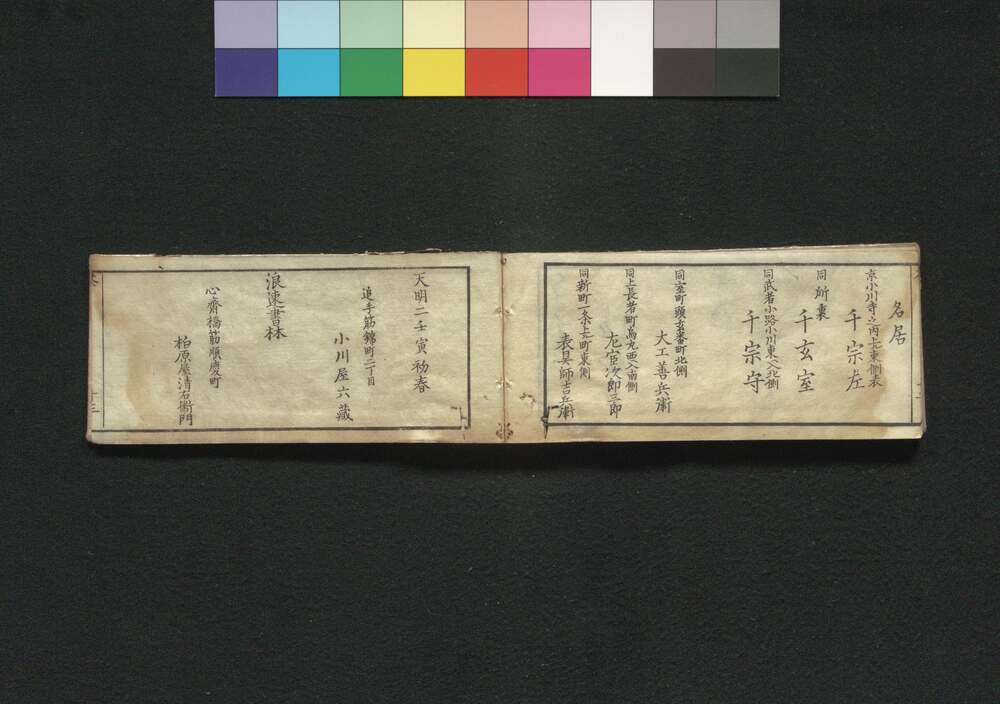 名居
京小川寺之内上東側表
千宗左
同所裏
千玄室
同武者小路小川東入北側
千宗守
同室町頭玄蕃町北側
大工善兵衛
同上長者町烏丸西入南側
庀官次郎三郎
同新町一条上町東側
表具師吉兵衛
天明二壬寅初春
追手筋錦町二丁目
小川屋六藏
浪速書林
心齋橋筋順慶町
柏原屋清右衛門
十三